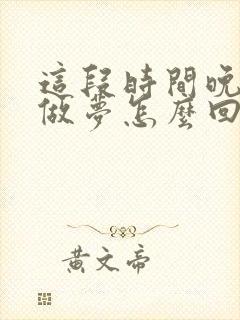 這段時間晚
做夢怎麼回
黃文帝